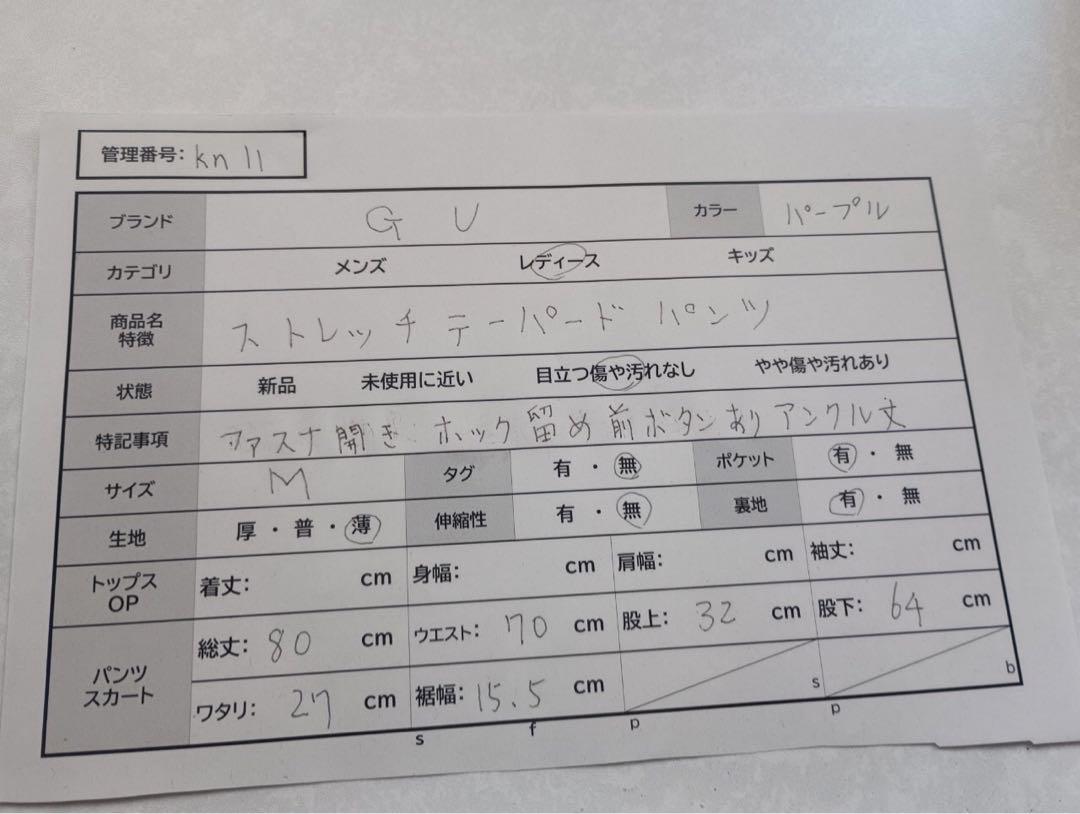 管理番号: kn 11
ブランド GU カラー パープル
カテゴリ メンズ レディース キッズ
商品名 特徴 ストレッチ テーパード パンツ
状態 新品 未使用に近い 目立つ傷や汚れなし やや傷や汚れあり
特記事項 ファスナ開き ホック留め前ボタンあり アンクル丈
サイズ M タグ 有・無 ポケット 有・無
生地 厚・普・薄 伸縮性 有・無 裏地 有・無
トップス OP 着丈: cm 身幅: cm 肩幅: cm 袖丈: cm
パンツ スカート 総丈: 80 cm ウエスト: 70 cm 股上: 32 cm 股下: 64 cm
ワタリ: 27 cm 裾幅: 15.5 cm
s b
s f p p